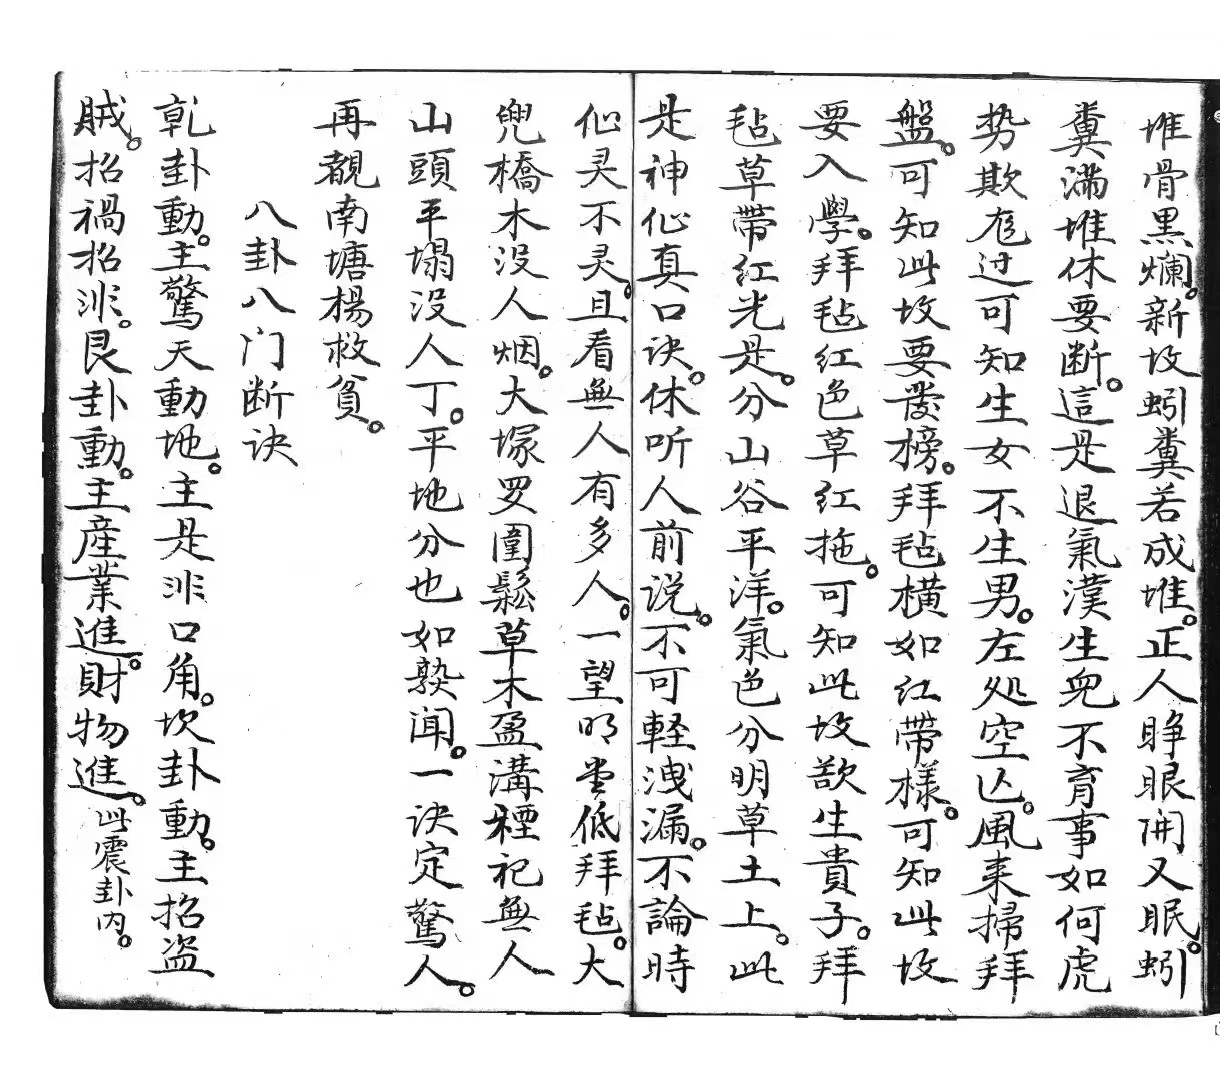 堆骨黑爛。新坟蚓糞若成堆。正人睁眼開又眠。蚓
糞满堆休要断。這是退氣漢生兜不育事如何虎
势欺尨过可知生女不生男。左处空亾。風来掃拜
盤。可知此坟要發榜。拜毡横如红帶樣。可知此坟
要入學。拜毡红色草红拖。可知此坟欲生貴子。拜
毡草帶红光是。分山谷平洋。氣色分明草土上。此
是神仙真口诀。休听人前说。不可軽洩漏。不論時
仙灵不灵。且看無人有多人。一望明堂低拜毡。大
兜橋木没人烟。大塚罗圍鬆草木盈溝禋祀無人
山頭平塌没人丁。平地分也如孰闻。一诀定驚人。
再覩南塘楊救貧。
八卦八门断诀
乹卦動。主驚天動地。主是非口角。坎卦動。主招盗
賊。招禍招非。艮卦動。主産業進。財物進。此震卦内。